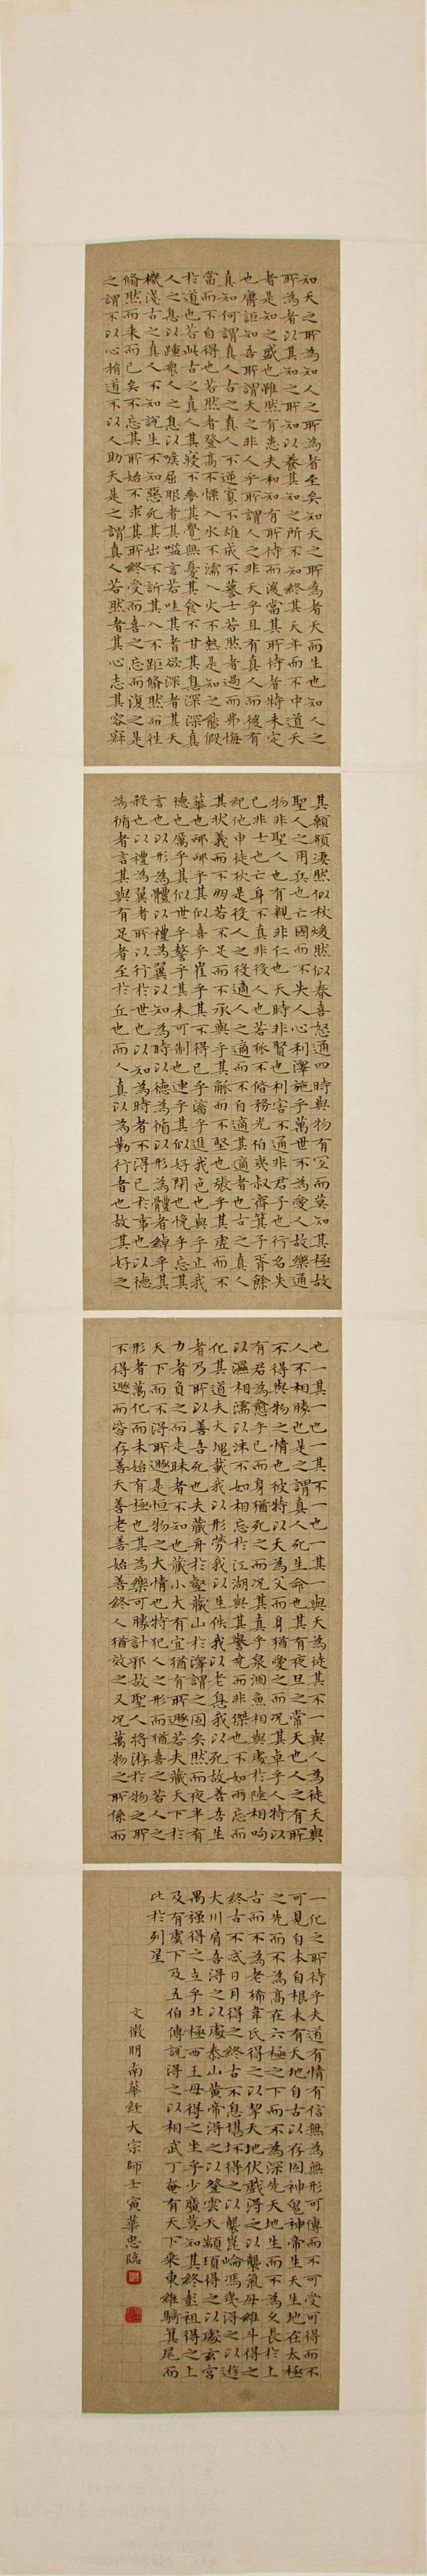 知天之所為知人之所為者至矣知天之所為者天而生也知人之
所為者以其知之所知以養其知之所不知終其天年而不中道夭
者是知之盛也雖然有患夫和知有所待而後當其所待者特未定
也庸詎知吾所謂天之非人乎所謂人之非天乎且有真人而後有
真知何謂真人古之真人不逆寡不雄成不謩士若然者過而弗悔
當而不自得也若然者登高不慄入水不濡入火不熱是知之能假
於道也若此古之真人其寢不夢其覺無憂其食不甘其息深深真
人之息以踵眾人之息以喉屈服者其嗌言若哇其耆欲深者其天
機淺古之真人不知說生不知惡死其出不訢其入不距翛然而往
翛然而來而已矣不忘其所始不求其所終受而喜之忘而復之是
之謂不以心捐道不以人助天是之謂真人若然者其心志其容寂
其顙頯淒然似秋煖然似春喜怒通四時與物有宜而莫知其極故
聖人之用兵也亡國而不失人心利澤施乎萬世不為愛人故樂通
物非聖人也有親非仁也天時非賢也利害不通非君子也行名失
己非士也亡身不真非役人也若狐不偕務光伯夷叔齊箕子胥餘
紀他申徒狄是役人之役適人之適而不自適其適者也古之真人
其狀義而不朋若不足而不承與乎其觚而不堅也張乎其虛而不
華也邴邴乎其似喜乎崔乎其不得已乎滀乎進我色也與乎止我
德也厲乎其似世乎謷乎其未可制也連乎其似好閉也悗乎忘其
言也以形為體以禮為翼以知為時以德為循以形為體者綽乎其
殺也以禮為翼者所以行於世也以知為時者不得已於事也以德
為循者言其與有足者至於丘也而人真以為勤行者也故其好之
也一其一也一其不一也一其一與天為徒其不一與人為徒天與
人不相勝也是之謂真人死生命也其有夜旦之常天也人之有所
不得與物之情也彼特以天為父而身猶愛之而況其卓乎人特以
有君為愈乎己而身猶死之而況其真乎泉涸魚相與處於陸相呴
以濕相濡以沫不如相忘於江湖與其譽堯而非桀也不如兩忘而
化其道夫大塊載我以形勞我以生佚我以老息我以死故善吾生
者乃所以善吾死也夫藏舟於壑藏山於澤謂之固矣然而夜半有
力者負之而走昧者不知也藏小大有宜猶有所遯若夫藏天下於
天下而不得所遯是恒物之大情也特犯人之形而猶喜之若人之
形者萬化而未始有極也其為樂可勝計邪故聖人將游於物之所
不得遯而皆存善夭善老善始善終人猶效之又況萬物之所係而
一化之所待乎夫道有情有信無為無形可傳而不可受可得而不
可見自本自根未有天地自古以固存神鬼神帝生天生地在太極
之先而不為高在六極之下而不為深先天地生而不為久長於上
古而不為老狶韋氏得之以挈天地伏戲得之以襲氣母維斗得之
終古不忒日月得之終古不息堪坏得之以襲崑崙馮夷得之以遊
大川肩吾得之以處泰山黃帝得之以登雲天顓頊得之以處玄宮
禺強得之立乎北極西王母得之坐乎少廣莫知其終彭祖得之上
及有虞下及五伯傅說得之以相武丁奄有天下乘東維騎箕尾而
比於列星
文徵明南華經大宗師壬寅葉忠臨